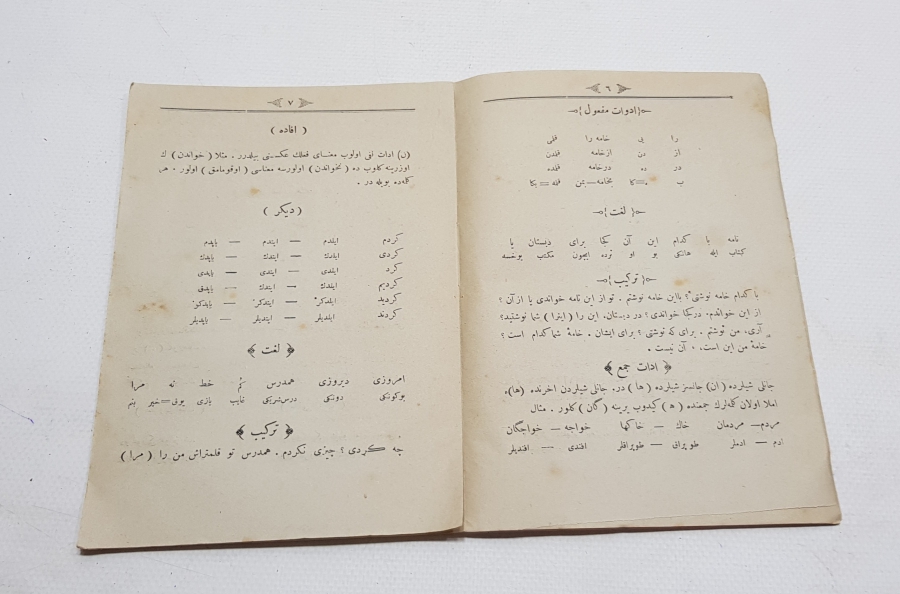 ٦
ادوات مفعول
را بی خامه را قلمی
از دن ازخامه قلمدن
در ده درخامه قلمده
ب ه=كا بخامه=بتن قلمه=بكا
لغت
نامه با كدام این آن كجا برای دبستان یا
كتاب ایله هانكی بو او نرده ایچون مكتب یوخسه
تركیب
با كدام خامه نوشتی؟ بااین خامه نوشتم . تو از این نامه خواندی یا از آن ؟
از این خواندم. دركجا خواندی؟ در دبستان. این را (اینرا) شما نوشتید؟
آری، من نوشتم . برای كه نوشتی ؟ برای ایشان . خامۀ شما كدام است ؟
خامۀ من این است ، آن نیست .
ادات جمع
جانلی شیلرده (ان) جانسز شیلرده (ها) در. جانلی شیلردن اخرنده (ها)ء
املا اولان كلمه‌لرك جمعنده (ه) كیدوب یرینه (گان) كلور . مثال
مردم— مردمان خاك — خاكها خواجه — خواجگان
ادم — ادملر طوپراق — طوپراقلر افندی — افندیلر
٧
( افاده )
(ن) ادات نفی اولوب معنای فعلك عكسنی بیلدرر . مثلا (خواندن) ك
اوزرینه كلوب ده (نخواندن) اولورسه معناسی (اوقومامق) اولور . هر
كلمه‌ده بویله در .
( دیكر )
كردم ایلدم — ایتدم — یاپدم
كردی ایلدك — ایتدك — یاپدك
كرد ایلدی — ایتدی — یاپدی
كردیم ایلدك — ایتدك — یاپدق
كردید ایلدكز — ایتدكز — یاپدكز
كردند ایلدیلر — ایتدیلر — یاپدیلر
لغت
امروزی دیروزی همدرس گم خط نه مرا
بوكونكی دونكی درس‌شریكی غایب یازی یوق=خیر بنم
تركیب
چه كردی ؟ چیزی نكردم . همدرس تو قلمتراش من را (مرا)